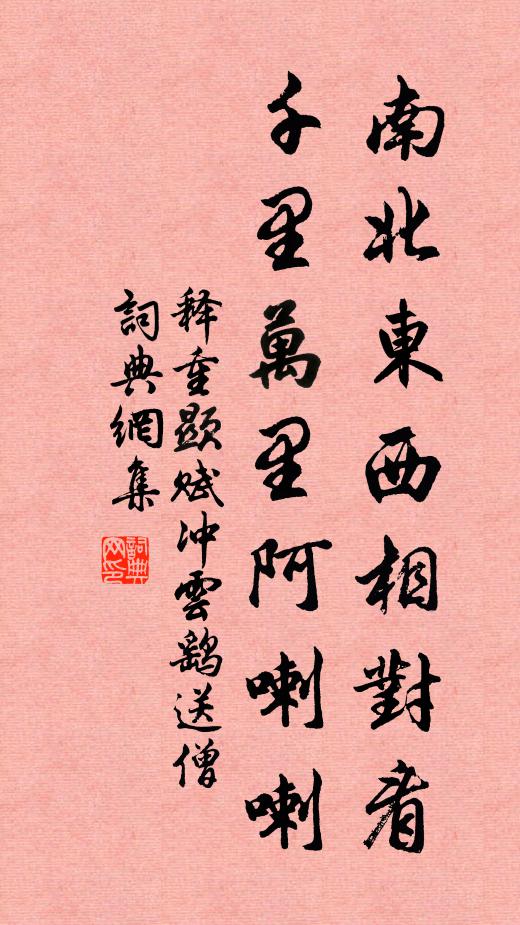 南北東西相對看
千里萬里阿喇喇
释重顕賦冲雲鷂送僧
詞典網集
詞典
网印